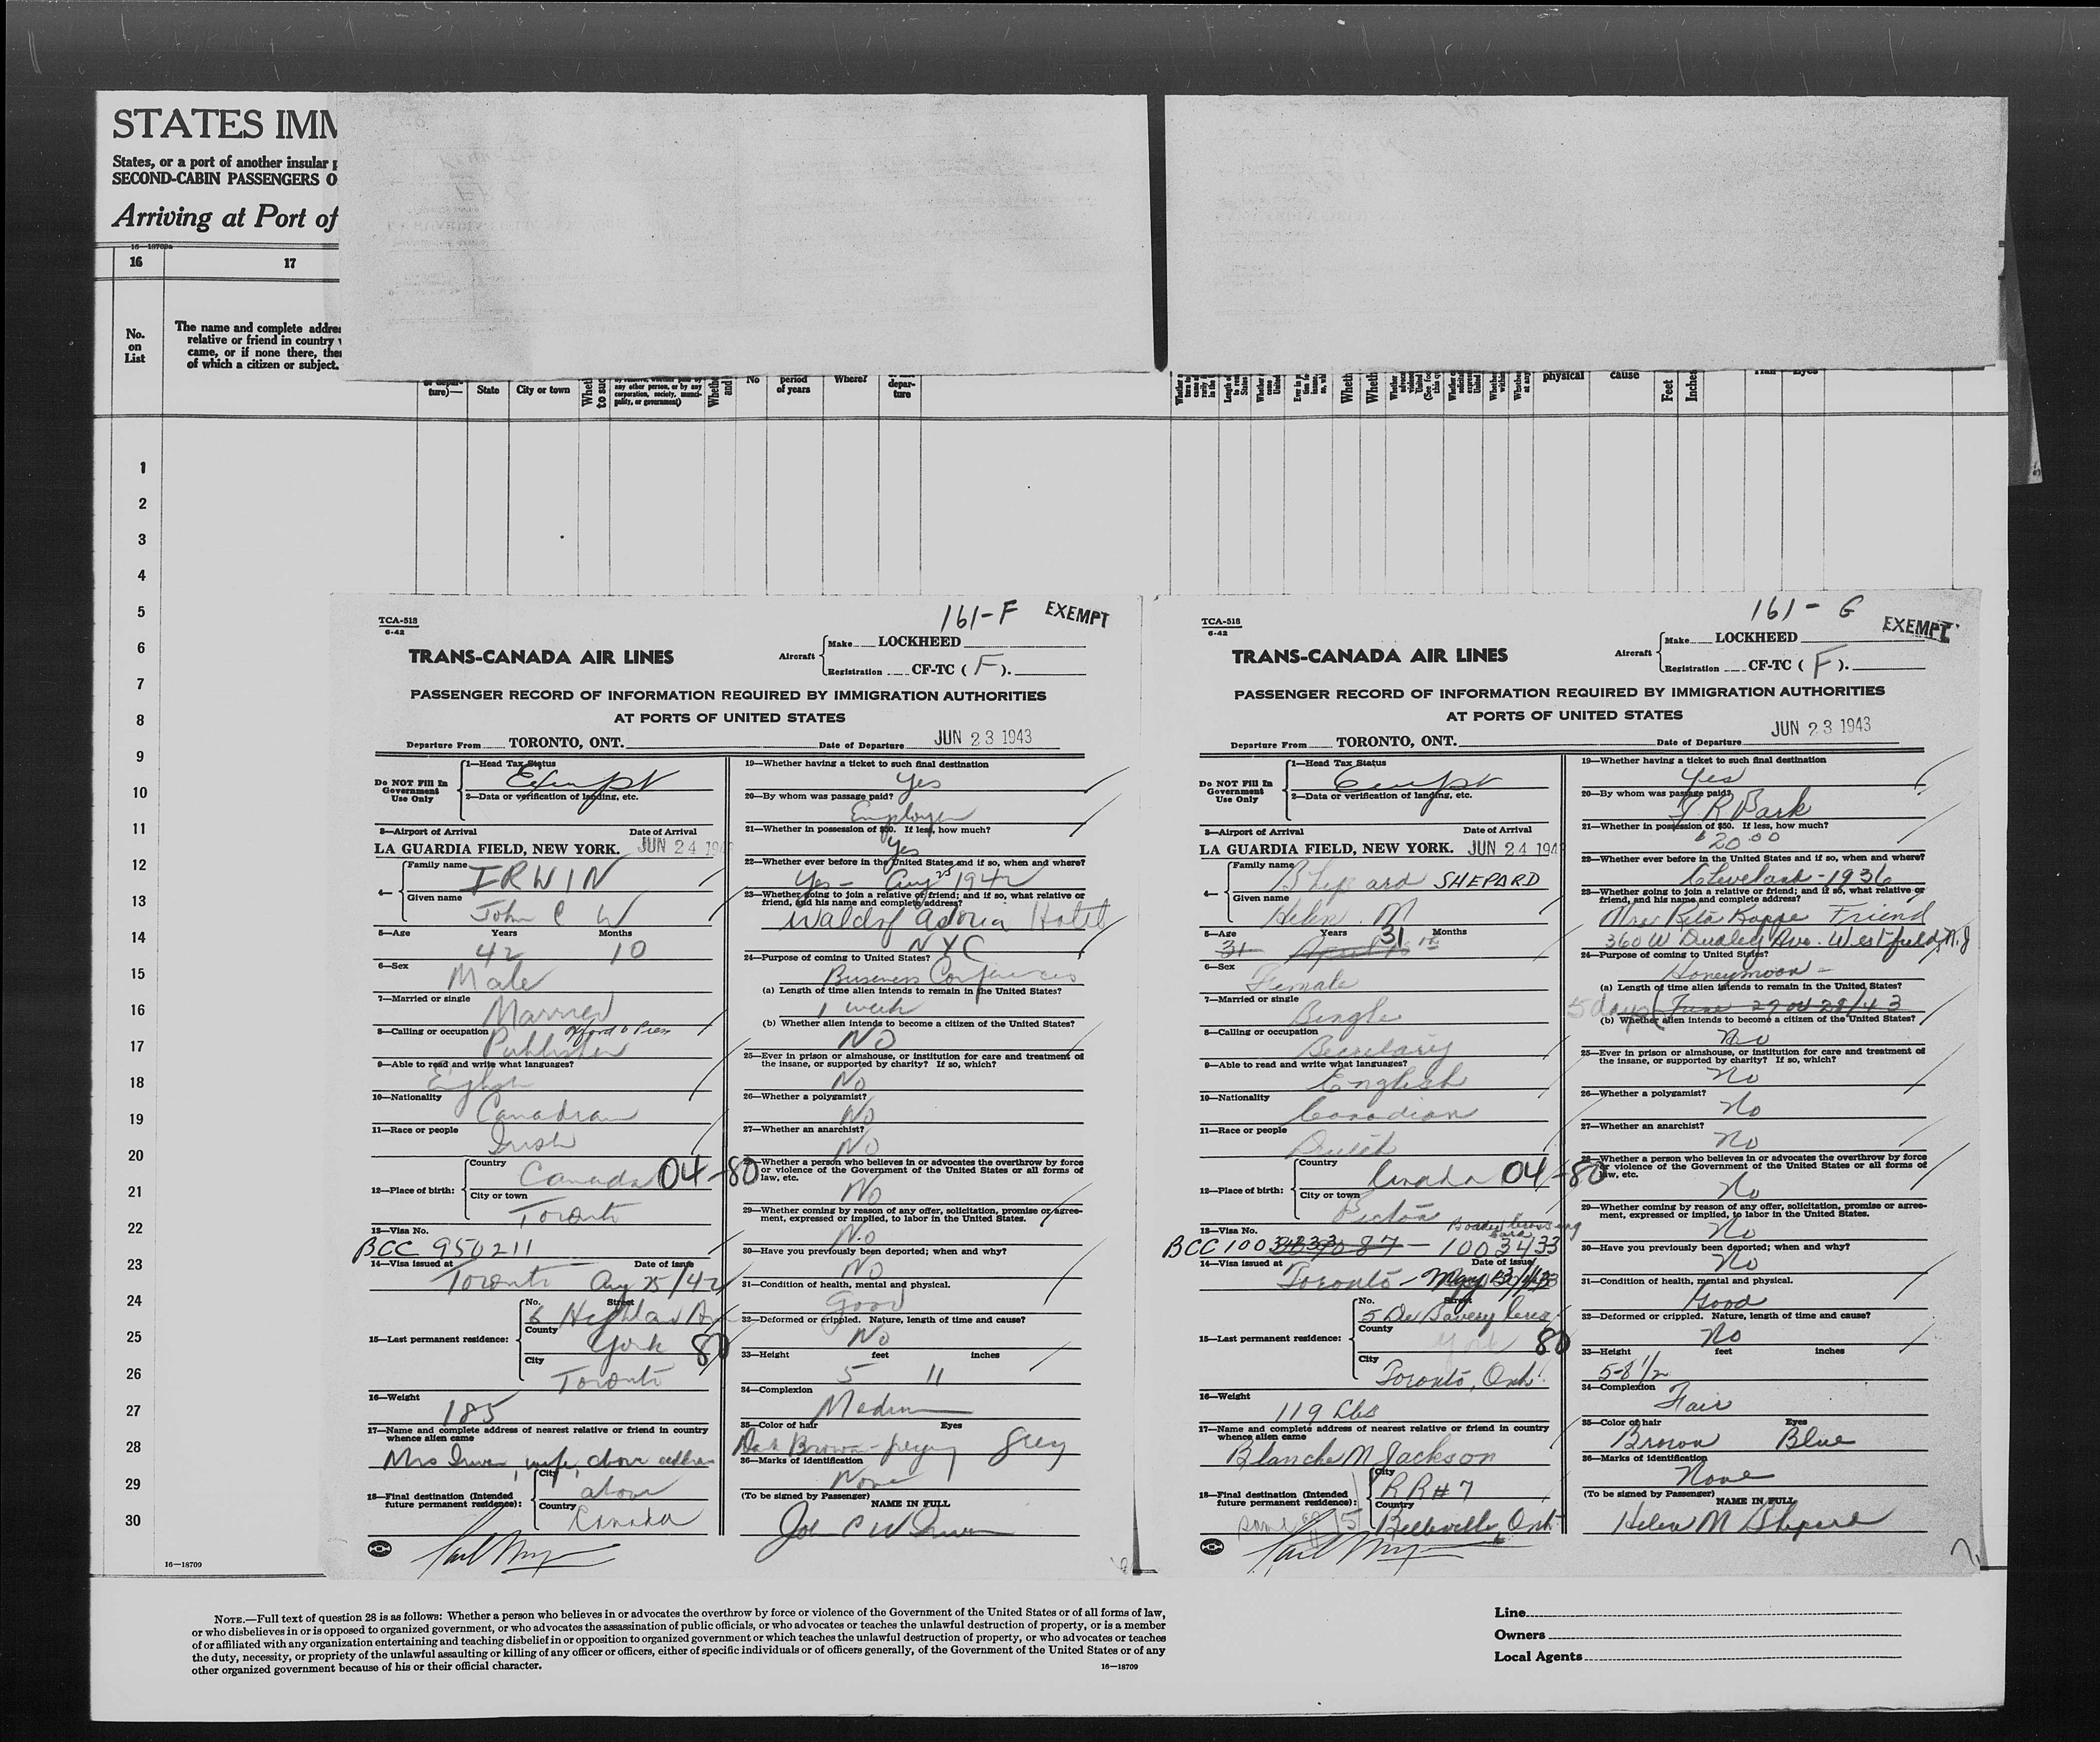 STATES IMM
States, or a port of another insular p
SECOND-CABIN PASSENGERS O
Arriving at Port of
16—18709a
16
17
No.
on
List
The name and complete addre
relative or friend in country
came, or if none there, the
of which a citizen or subject.
ture)—
State
City or town
any other person, or by any
corporation, society, munici-
pality, or government)
No
period
of years
Where?
depar-
ture
physical
cause
Feet
Inches
1
2
3
4
5
6
7
8
9
10
11
12
13
14
15
16
17
18
19
20
21
22
23
24
25
26
27
28
29
30
16—18709
161-F EXEMPT
TCA-518
6-42
TRANS-CANADA AIR LINES
Aircraft
Make LOCKHEED
Registration CF-TC ( F ).
PASSENGER RECORD OF INFORMATION REQUIRED BY IMMIGRATION AUTHORITIES
AT PORTS OF UNITED STATES
Departure From TORONTO, ONT. Date of Departure JUN 23 1943
Do NOT Fill In
Government
Use Only
1—Head Tax Status
Exempt
2—Data or verification of landing, etc.
3—Airport of Arrival Date of Arrival
LA GUARDIA FIELD, NEW YORK. JUN 24 194
4—
Family name IRWIN
Given name John C W
5—Age Years Months
42 10
6—Sex
Male
7—Married or single
Married
8—Calling or occupation Oxford U Press
Publisher
9—Able to read and write what languages?
English
10—Nationality
Canadian
11—Race or people
Irish
12—Place of birth:
Country
Canada 04-80
City or town
Toronto
13—Visa No.
BCC 950211
14—Visa issued at Date of issue
Toronto Aug 25/42
15—Last permanent residence:
No. Street
6 Highland Av
County
York 80
City
Toronto
16—Weight
185
17—Name and complete address of nearest relative or friend in country
whence alien came
Mrs Irwin, wife, above address
18—Final destination (Intended
future permanent residence):
City
above
Country
Canada
19—Whether having a ticket to such final destination
Yes
20—By whom was passage paid?
Employer
21—Whether in possession of $50. If less, how much?
Yes
22—Whether ever before in the United States and if so, when and where?
Yes - Aug 25 1942
23—Whether going to join a relative or friend; and if so, what relative or
friend, and his name and complete address?
Waldorf Astoria Hotel
NYC
24—Purpose of coming to United States?
Business Conferences
(a) Length of time alien intends to remain in the United States?
1 week
(b) Whether alien intends to become a citizen of the United States?
NO
25—Ever in prison or almshouse, or institution for care and treatment of
the insane, or supported by charity? If so, which?
No
26—Whether a polygamist?
No
27—Whether an anarchist?
No
28—Whether a person who believes in or advocates the overthrow by force
or violence of the Government of the United States or all forms of
law, etc.
No
29—Whether coming by reason of any offer, solicitation, promise or agree-
ment, expressed or implied, to labor in the United States.
No
30—Have you previously been deported; when and why?
No
31—Condition of health, mental and physical.
Good
32—Deformed or crippled. Nature, length of time and cause?
No
33—Height feet inches
5 11
34—Complexion
Medium
35—Color of hair Eyes
Dark Brown - greying Grey
36—Marks of identification
None
(To be signed by Passenger) NAME IN FULL
John C W Irwin
161- G EXEMPT
TCA-518
6-42
TRANS-CANADA AIR LINES
Aircraft
Make LOCKHEED
Registration CF-TC ( F ).
PASSENGER RECORD OF INFORMATION REQUIRED BY IMMIGRATION AUTHORITIES
AT PORTS OF UNITED STATES
Departure From TORONTO, ONT. Date of Departure JUN 23 1943
Do NOT Fill In
Government
Use Only
1—Head Tax Status
Exempt
2—Data or verification of landing, etc.
3—Airport of Arrival Date of Arrival
LA GUARDIA FIELD, NEW YORK. JUN 24 194
4—
Family name Shepard SHEPARD
Given name Helen. M
5—Age Years Months
31 31
6—Sex
Female
7—Married or single
Single
8—Calling or occupation
Secretary
9—Able to read and write what languages?
English
10—Nationality
Canadian
11—Race or people
Dutch
12—Place of birth:
Country
Canada 04-80
City or town
Picton
13—Visa No. Border Crossing
Card
BCC 100 1003433
14—Visa issued at Date of issue
Toronto - May
15—Last permanent residence:
No. Street
5 De Savery Cres
County
York 80
City
Toronto, Ont.
16—Weight
119 Lbs
17—Name and complete address of nearest relative or friend in country
whence alien came
Blanche M Jackson
18—Final destination (Intended
future permanent residence):
City
RR # 7
Country
Belleville, Ont
same as # 15
19—Whether having a ticket to such final destination
Yes
20—By whom was passage paid?
R Park
21—Whether in possession of $50. If less, how much?
$20.00
22—Whether ever before in the United States and if so, when and where?
Cleveland - 1936
23—Whether going to join a relative or friend; and if so, what relative or
friend, and his name and complete address?
Mrs Rita Koppe Friend
360 W Dudley Ave. Westfield, N.J
24—Purpose of coming to United States?
Honeymoon -
(a) Length of time alien intends to remain in the United States?
5 days ( June 27 or 28/43
(b) Whether alien intends to become a citizen of the United States?
No
25—Ever in prison or almshouse, or institution for care and treatment of
the insane, or supported by charity? If so, which?
No
26—Whether a polygamist?
No
27—Whether an anarchist?
No
28—Whether a person who believes in or advocates the overthrow by force
or violence of the Government of the United States or all forms of
law, etc.
No
29—Whether coming by reason of any offer, solicitation, promise or agree-
ment, expressed or implied, to labor in the United States.
No
30—Have you previously been deported; when and why?
No
31—Condition of health, mental and physical.
Good
32—Deformed or crippled. Nature, length of time and cause?
No
33—Height feet inches
5-8 1/2
34—Complexion
Fair
35—Color of hair Eyes
Brown Blue
36—Marks of identification
None
(To be signed by Passenger) NAME IN FULL
Helen M Shepard
NOTE.—Full text of question 28 is as follows: Whether a person who believes in or advocates the overthrow by force or violence of the Government of the United States or of all forms of law,
or who disbelieves in or is opposed to organized government, or who advocates the assassination of public officials, or who advocates or teaches the unlawful destruction of property, or is a member
of or affiliated with any organization entertaining and teaching disbelief in or opposition to organized government or which teaches the unlawful destruction of property, or who advocates or teaches
the duty, necessity, or propriety of the unlawful assaulting or killing of any officer or officers, either of specific individuals or of officers generally, of the Government of the United States or of any
other organized government because of his or their official character.
16—18709
Line
Owners
Local Agents